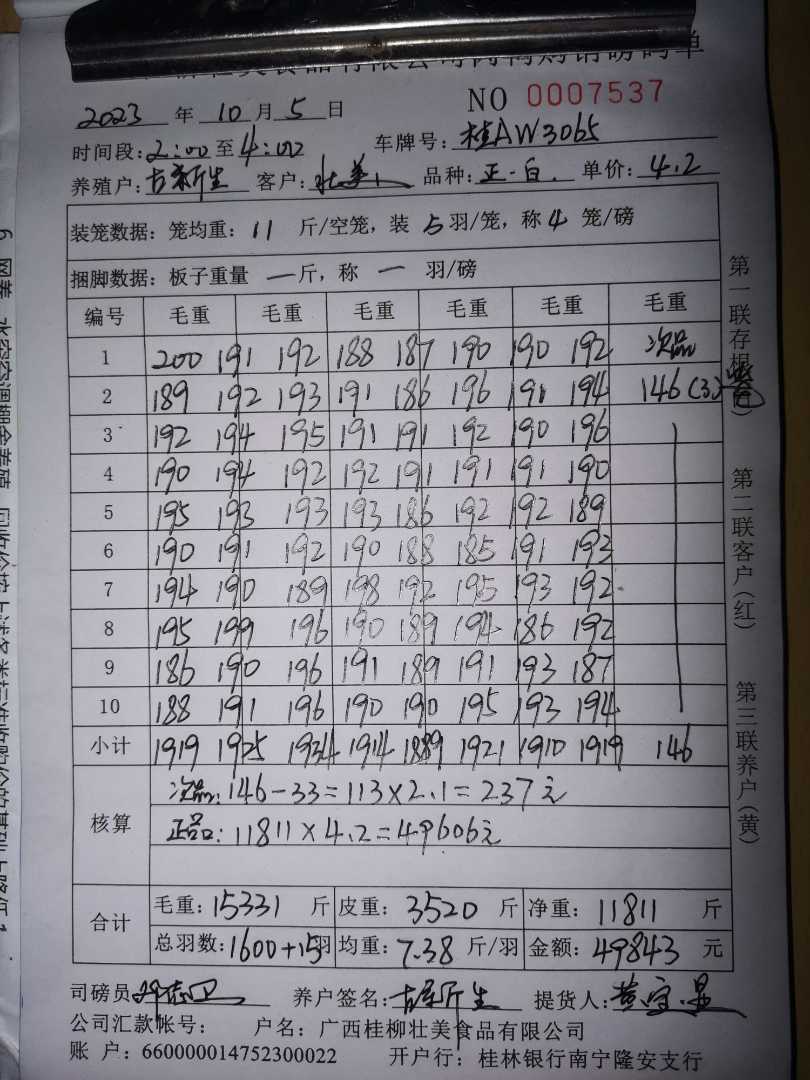 美食品有限公司肉鸭购销磅码单
NO 0007537
2023 年 10 月 5 日
时间段: 2:00 至 4:00 车牌号: 桂AW3065
养殖户: 古家新生 客户: 壮美 品种: 正·白. 单价: 4.2
装笼数据: 笼均重: 11 斤/空笼, 装 5 羽/笼, 称 4 笼/磅
捆脚数据: 板子重量 一 斤, 称 一 羽/磅
编号 毛重 毛重 毛重 毛重 毛重 毛重
1 200 191 192 188 187 190 190 192 次品
2 189 192 193 191 186 196 191 194 146 (3)
3 192 194 195 191 191 192 190 196
4 190 194 192 192 191 191 191 190
5 195 193 193 193 186 192 192 189
6 190 191 192 190 188 185 191 193
7 194 190 189 198 192 195 193 192
8 195 199 196 190 189 194 186 192
9 186 190 196 191 189 191 193 187
10 188 191 196 190 190 195 193 194
小计 1919 1925 1934 1914 1889 1921 1910 1919 146
核算 次品: 146-33=113×2.1=237元
正品: 11811×4.2=49606元
合计 毛重: 15331 斤 皮重: 3520 斤 净重: 11811 斤
总羽数: 1600+15羽 均重: 7.38 斤/羽 金额: 49843 元
司磅员 养户签名: 提货人:
公司汇款帐号: 户名: 广西桂柳壮美食品有限公司
账 户: 660000014752300022 开户行: 桂林银行南宁隆安支行
第一联存根
第二联客户(红)
第三联养户(黄)